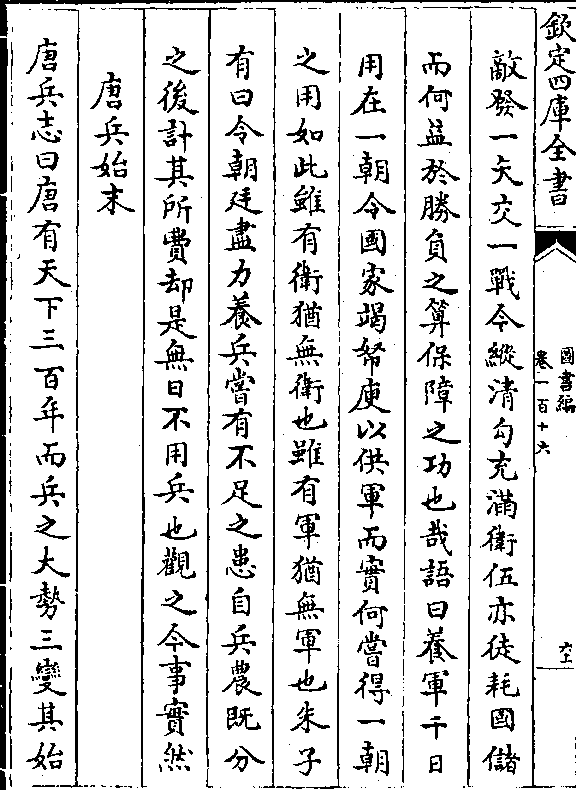 欽定四庫全書
圖書編
卷一百十六
六十
敵發一矢交一戰今縱清勾充滿衛伍亦徒耗國儲
而何益於勝負之算保障之功也哉語曰養軍千日
用在一朝今國家竭帑庾以供軍而實何嘗得一朝
之用如此雖有衛猶無衛也雖有軍猶無軍也朱子
有曰今朝廷盡力養兵嘗有不足之患自兵農既分
之後計其所費却是無日不用兵也觀之今事實然
唐兵始末
唐兵志曰唐有天下三百年而兵之大勢三變其始